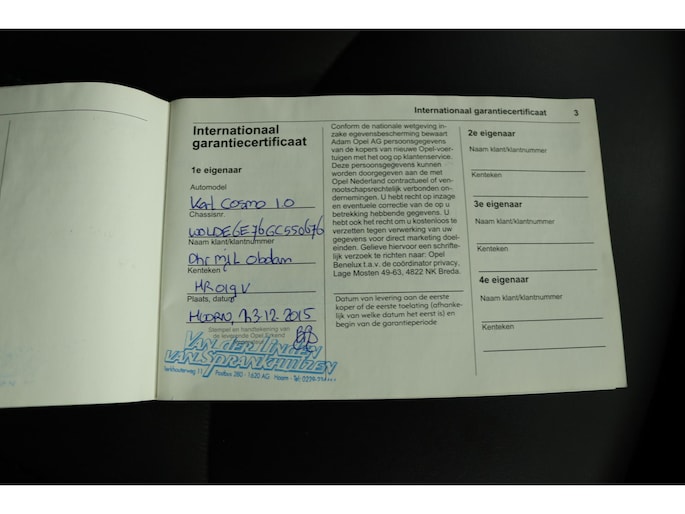 Internationaal garantiecertificaat 3
Internationaal
garantiecertificaat
1e eigenaar
Automodel
Karl Cosmo 1.0
Chassisnr.
W0LDE6E76GC550676
Naam klant/klantnummer
Dhr MJL Obdam
Kenteken
HR019V
Plaats, datum
Hoorn, 23.12.2015
Stempel en handtekening van
de leverende Opel Erkend
VAN DER LINDEN
VAN SPRANKHUIZEN
Postbus 280 - 1620 AG Hoorn - Tel: 0229-
Conform de nationale wetgeving in-
zake egevensbescherming bewaart
Adam Opel AG persoonsgegevens
van de kopers van nieuwe Opel-voer-
tuigen met het oog op klantenservice.
Deze persoonsgegevens kunnen
worden doorgegeven aan de met
Opel Nederland contractueel of ven-
nootschapsrechtelijk verbonden on-
dernemingen. U hebt recht op inzage
en eventuele correctie van de op u
betrekking hebbende gegevens. U
hebt ook het recht om u kosteloos te
verzetten tegen verwerking van uw
gegevens voor direct marketing doel-
einden. Gelieve hiervoor een schrifte-
lijk verzoek te richten naar: Opel
Benelux t.a.v. de coördinator privacy,
Lage Mosten 49-63, 4822 NK Breda.
Datum van levering aan de eerste
koper of de eerste toelating (afhanke-
lijk van welke datum het eerst is) en
begin van de garantieperiode
2e eigenaar
Naam klant/klantnummer
Kenteken
3e eigenaar
Naam klant/klantnummer
Kenteken
4e eigenaar
Naam klant/klantnummer
Kenteken